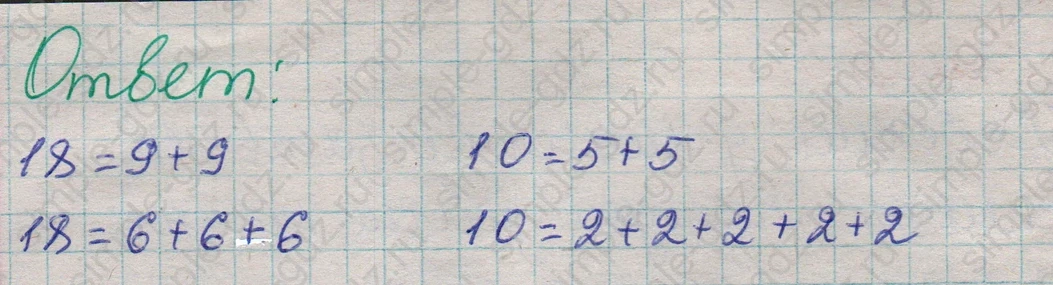 Ответ:
18 = 9 + 9 10 = 5 + 5
18 = 6 + 6 + 6 10 = 2 + 2 + 2 + 2 + 2
simple-gdz.ru